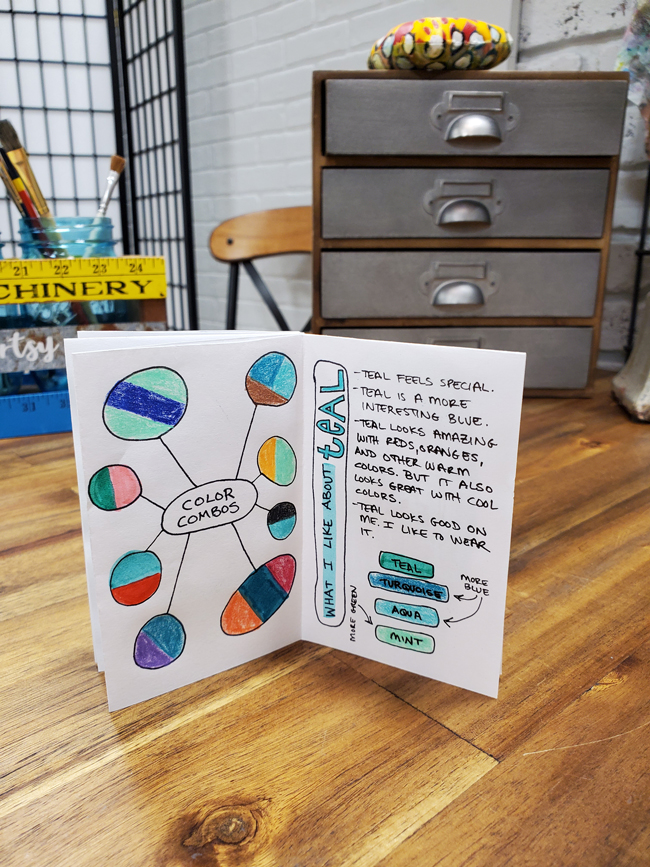 21 22 23 24
CHINERY
rtsy
COLOR
COMBOS
WHAT I LIKE ABOUT teAL
- TEAL FEELS SPECIAL.
- TEAL IS A MORE
INTERESTING BLUE.
- TEAL LOOKS AMAZING
WITH REDS, ORANGES,
AND OTHER WARM
COLORS. BUT IT ALSO
LOOKS GREAT WITH COOL
COLORS.
- TEAL LOOKS GOOD ON
ME. I LIKE TO WEAR
IT.
TEAL
TURQUOISE
AQUA
MINT
MORE
BLUE
MORE GREEN